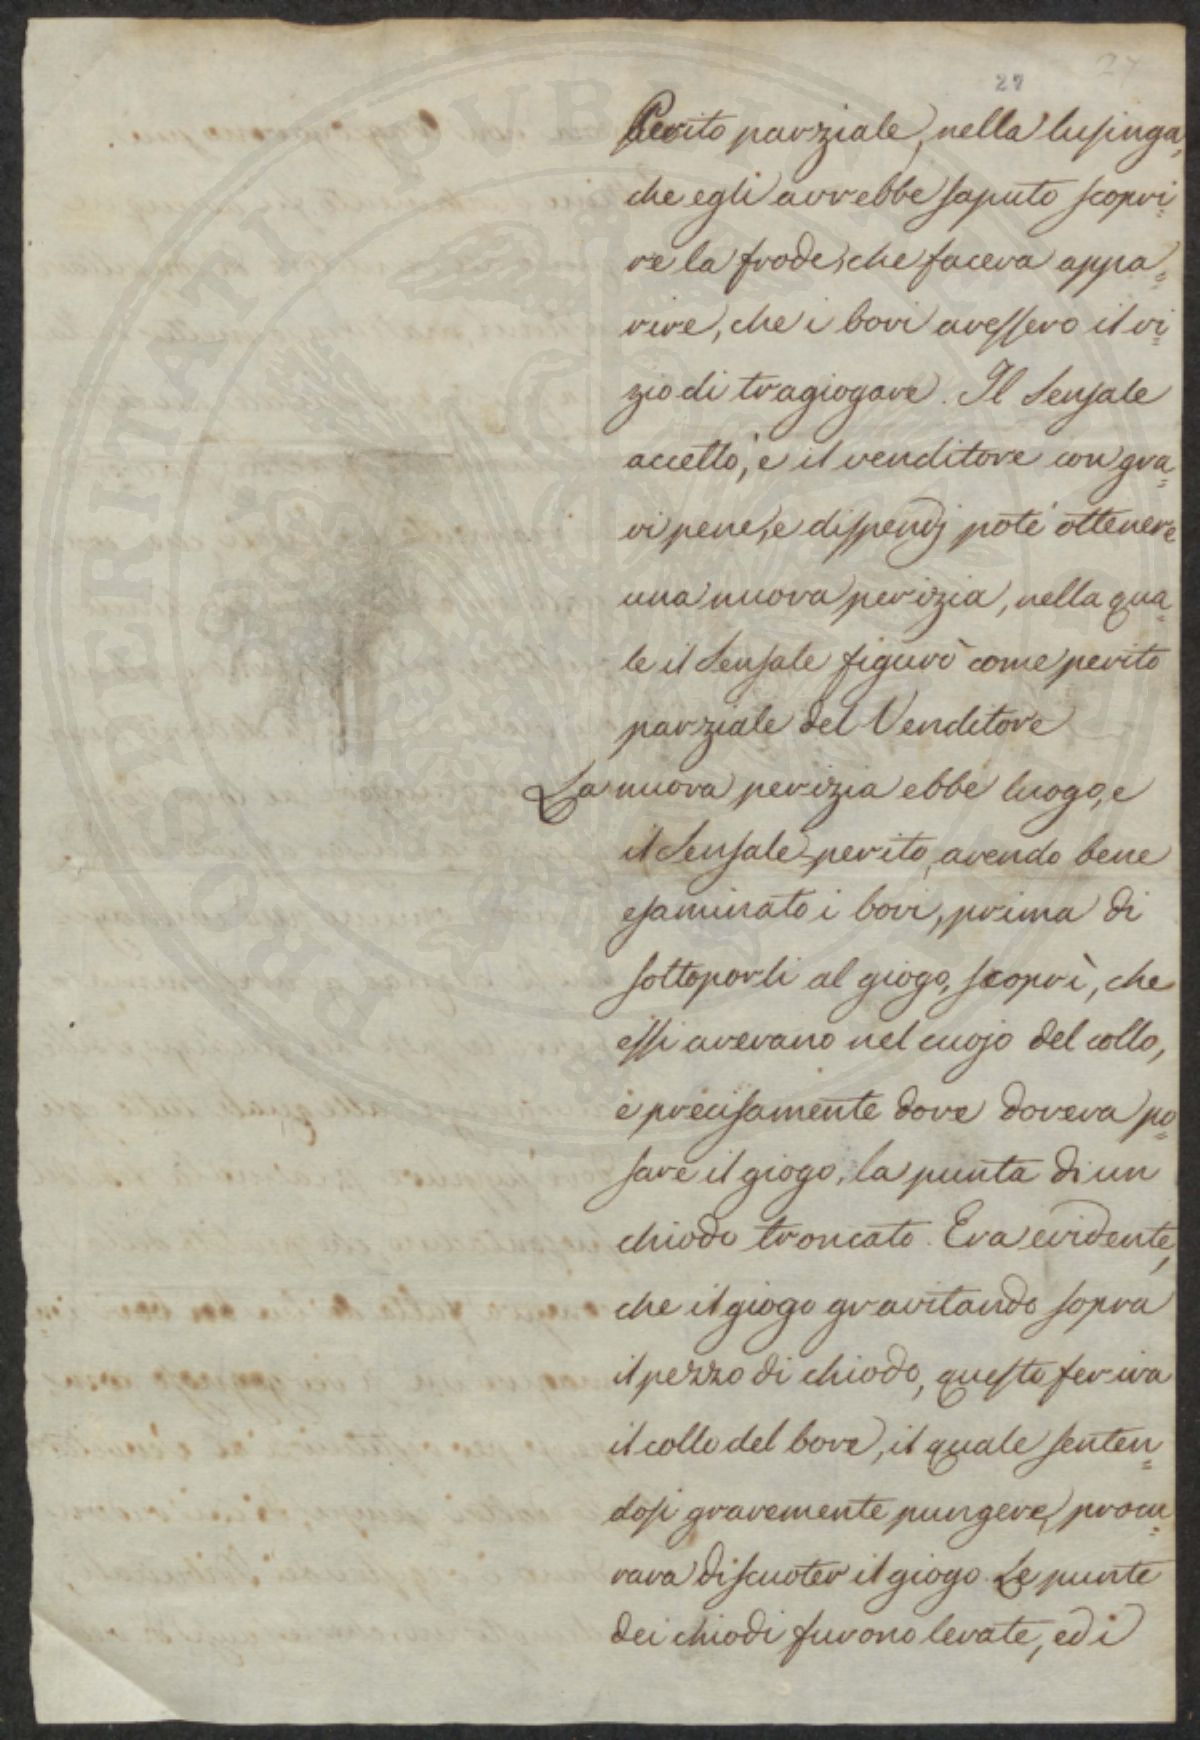 27
27
Perito parziale, nella lusinga,
che egli avrebbe saputo scopri=
re la frode, che faceva appa=
rire, che i bovi avessero il vi=
zio di tragiogare. Il Sensale
accettò, e il venditore con gra=
vi pene, e dispendj poté ottenere
una nuova perizia, nella qua=
le il Sensale figurò come perito
parziale del Venditore
La nuova perizia ebbe luogo, e
il Sensale perito, avendo bene
esaminato i bovi, prima di
sottoporli al giogo, scoprì, che
essi avevano nel cuojo del collo,
e precisamente dove doveva po=
sare il giogo, la punta di un
chiodo troncato. Era evidente,
che il giogo gravitando sopra
il pezzo di chiodo, questo feriva
il collo del bove, il quale senten=
dosi gravemente pungere, procu=
rava di scuoter il giogo. Le punte
dei chiodi furono levate, ed i
PROSPERITATI PUBLICAE